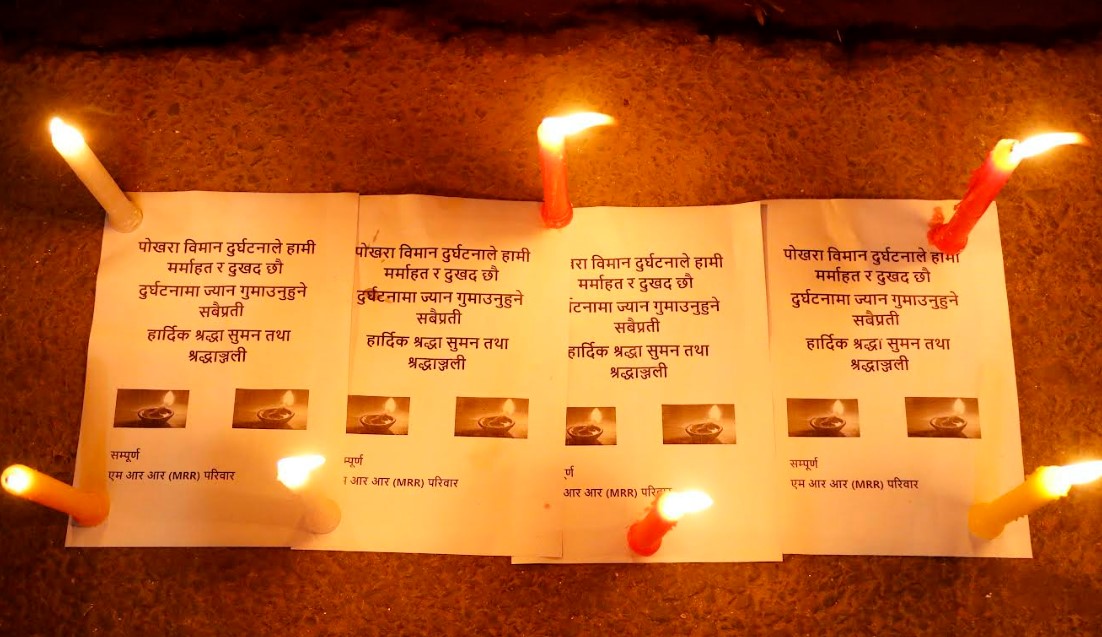 पोखरा विमान दुर्घटनाले हामी
मर्माहत र दुखद छौ
दुर्घटनामा ज्यान गुमाउनुहुने
सबैप्रती
हार्दिक श्रद्धा सुमन तथा
श्रद्धाञ्जली
सम्पूर्ण
एम आर आर (MRR) परिवार
पोखरा विमान दुर्घटनाले हामी
मर्माहत र दुखद छौ
दुर्घटनामा ज्यान गुमाउनुहुने
सबैप्रती
हार्दिक श्रद्धा सुमन तथा
श्रद्धाञ्जली
आर आर (MRR) परिवार
विमान दुर्घटनाले हामी
मर्माहत र दुखद छौ
ज्यान गुमाउनुहुने
सबैप्रती
हार्दिक श्रद्धा सुमन तथा
श्रद्धाञ्जली
आर आर (MRR)
पोखरा विमान दुर्घटनाले हामी
मर्माहत र दुखद छौ
दुर्घटनामा ज्यान गुमाउनुहुने
सबैप्रती
हार्दिक श्रद्धा सुमन तथा
श्रद्धाञ्जली
सम्पूर्ण
एम आर आर (MRR) परिवार